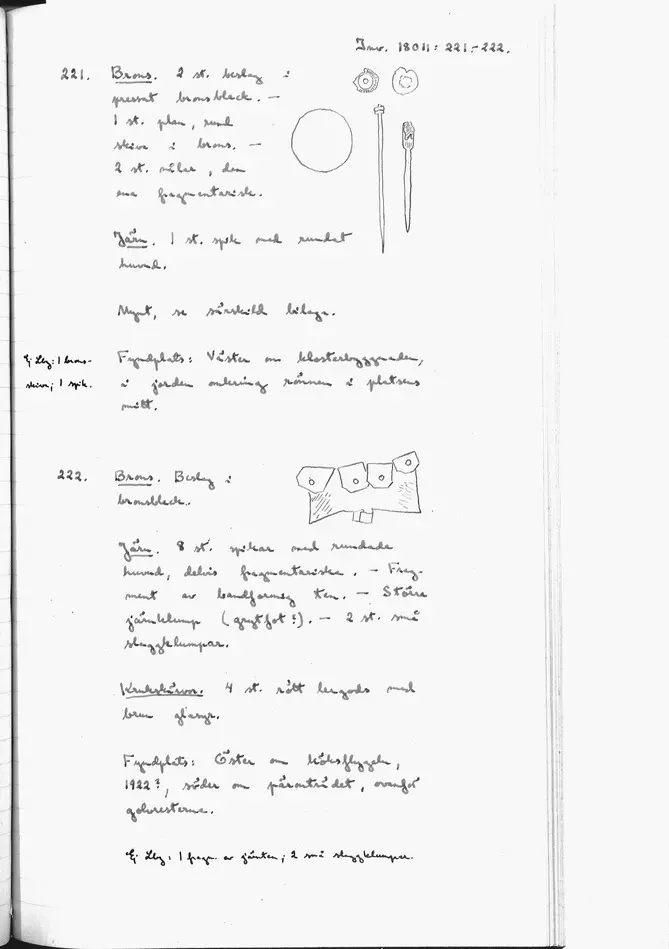 Inv. 18011: 221-222.
221. Brons. 2 st. beslag i
pressat bronsbleck. —
1 st. plan, rund
skiva i brons. —
2 st. nålar, den
ena fragmentarisk.
Järn. 1 st. spik med rundat
huvud.
Mynt, se särskild bilaga.
Ej Lbg: 1 brons-
skiva; 1 spik.
Fyndplats: Väster om klosterbyggnaden,
i jorden omkring rännen i platsens
mitt.
222. Brons. Beslag i
bronsbleck.
Järn. 8 st. spikar med rundade
huvud, delvis fragmentariska. — Frag-
ment av bandformig ten. — Större
järnklump (grytfot?). — 2 st. små
slaggklumpar.
Krukskärvor. 4 st. rött lergods med
brun glasyr.
Fyndplats: Öster om köksflygeln,
1922?, söder om päronträdet, ovanför
golvresterna.
Ej Lbg: 1 fragm. av järnten; 2 små slaggklumpar.